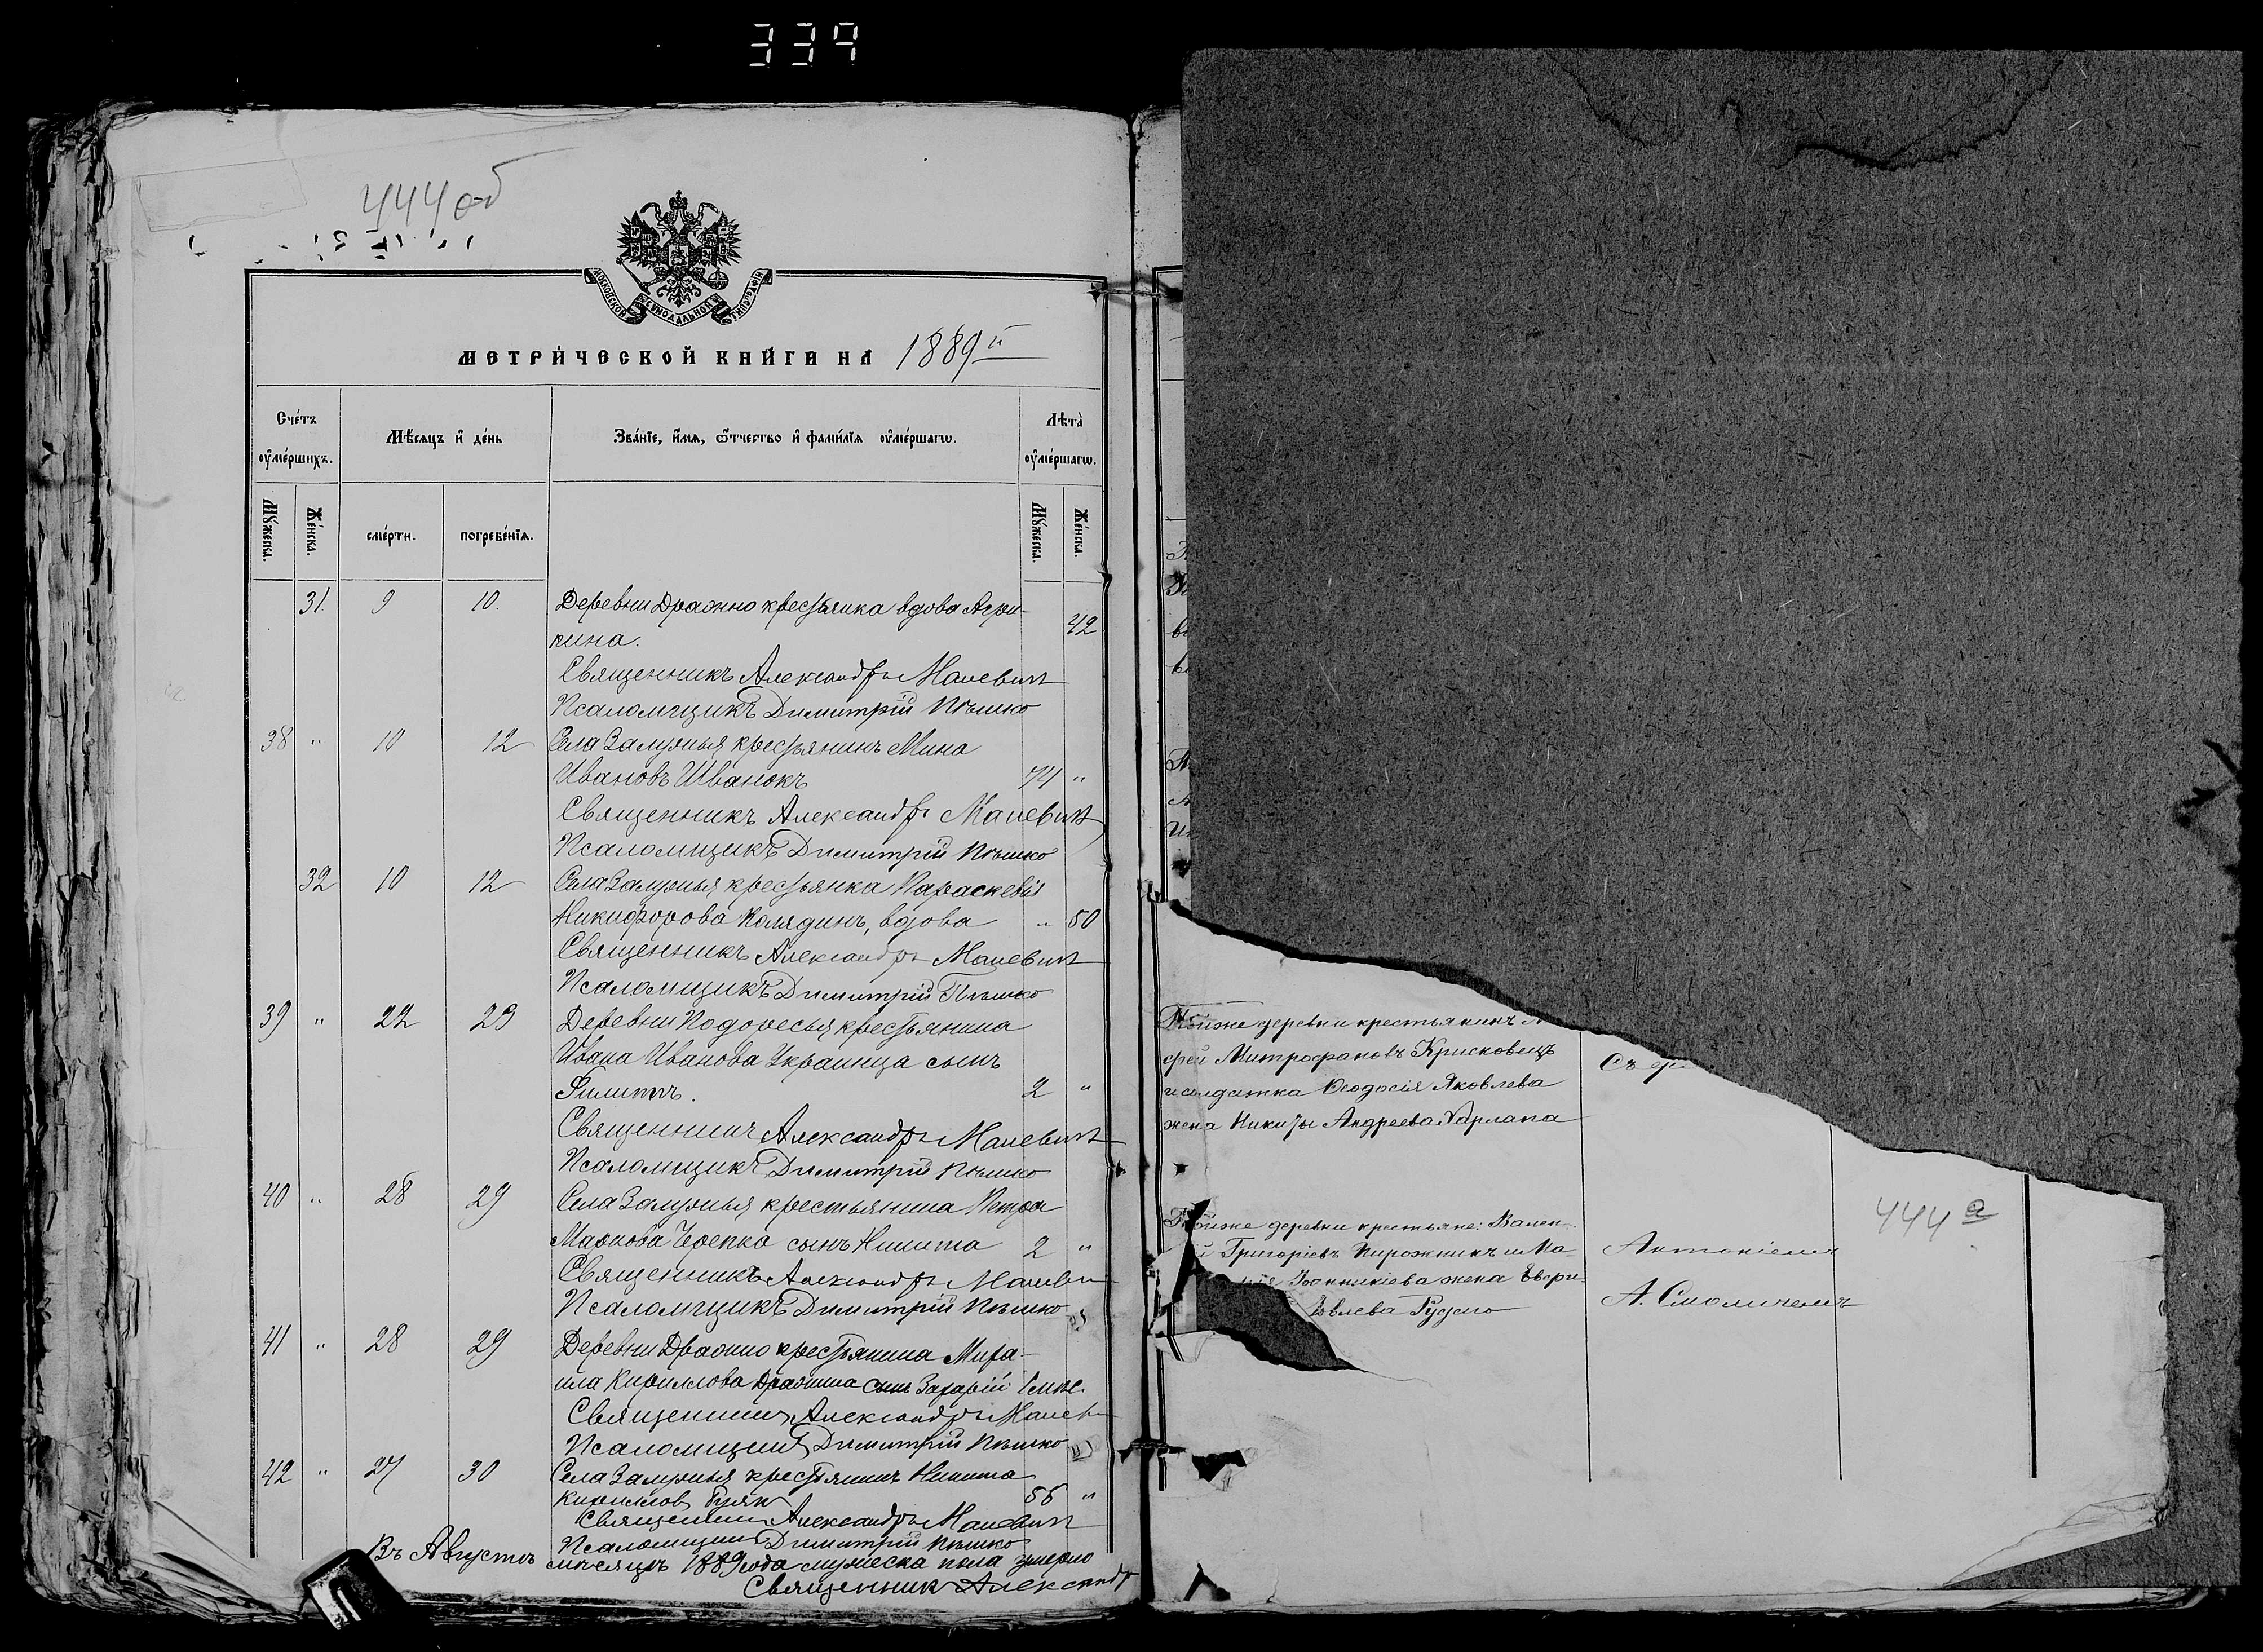 337
444 об
МОСКОВСКОЙ СѴНОДАЛЬНОЙ ТИПОГРАФІИ
МЕТРИ́ЧЕСКОЙ КНИ́ГИ НА 1889 й
Сче́тъ ᲂумéршихъ.
Мѣ́сяцъ и҆ де́нь
Зва́нїе, и҆́мѧ, ѻ҆́тчество и҆ фами́лїѧ ᲂу҆ме́ршагѡ.
Лѣта̀ ᲂу҆ме́ршагѡ.
Мꙋ́жеска.
Же́нска.
сме́рти.
погребе́нїѧ.
Мꙋ́жеска.
Же́нска.
31. 9 10. Деревни Дражно крестьянка вдова Агри-
пина. 42
Священникъ Александръ Малевичъ
Псаломщикъ Димитрій Пѣшко
38 " 10 12 Села Залужья крестьянинъ Мина
Ивановъ Иванокъ 74 "
Священникъ Александръ Малевичъ
Псаломщикъ Димитрій Пѣшко
32 10 12 Села Залужья крестьянка Параскевія
Никифорова Колядинъ, вдова " 50
Священникъ Александръ Малевичъ
Псаломщикъ Димитрій Пѣшко
39 " 22 23 Деревни Подоресья крестьянина
Ивана Иванова Украинца сынъ
Филиппъ. 2 "
Священникъ Александръ Малевичъ
Псаломщикъ Димитрій Пѣшко
40 " 28 29 Села Залужья крестьянина Петра
Маркова Черепко сынъ Никита 2 "
Священникъ Александръ Малеви
Псаломщикъ Димитрій Пѣшко
41 " 28 29 Деревни Дражно крестьянина Миха-
ила Кириллова Дражина сынъ Захарій 1 мѣс.
Священникъ Александръ Малев
Псаломщикъ Димитрій Пѣшко
42 " 27 30 Села Залужья крестьянинъ Никита
Кирилловъ 56 "
Священникъ Александръ Малевичъ
Псаломщикъ Димитрій Пѣшко
Въ Августѣ мѣсяцѣ 1889 года мужеска пола умерло
Священникъ Александр
Тойже деревни крестьянинъ
фей Митрофановъ Крисковецъ Съ
и солдатка Ѳеодосія Яковлева
жена Никиты Андреева Харлапа
444 а
Тойже деревни крестьяне: Вален-
й Григорьевъ Пирожникъ и Ма- Антоніемъ
Іоанникіева жена
Рудько А. Смоличемъ